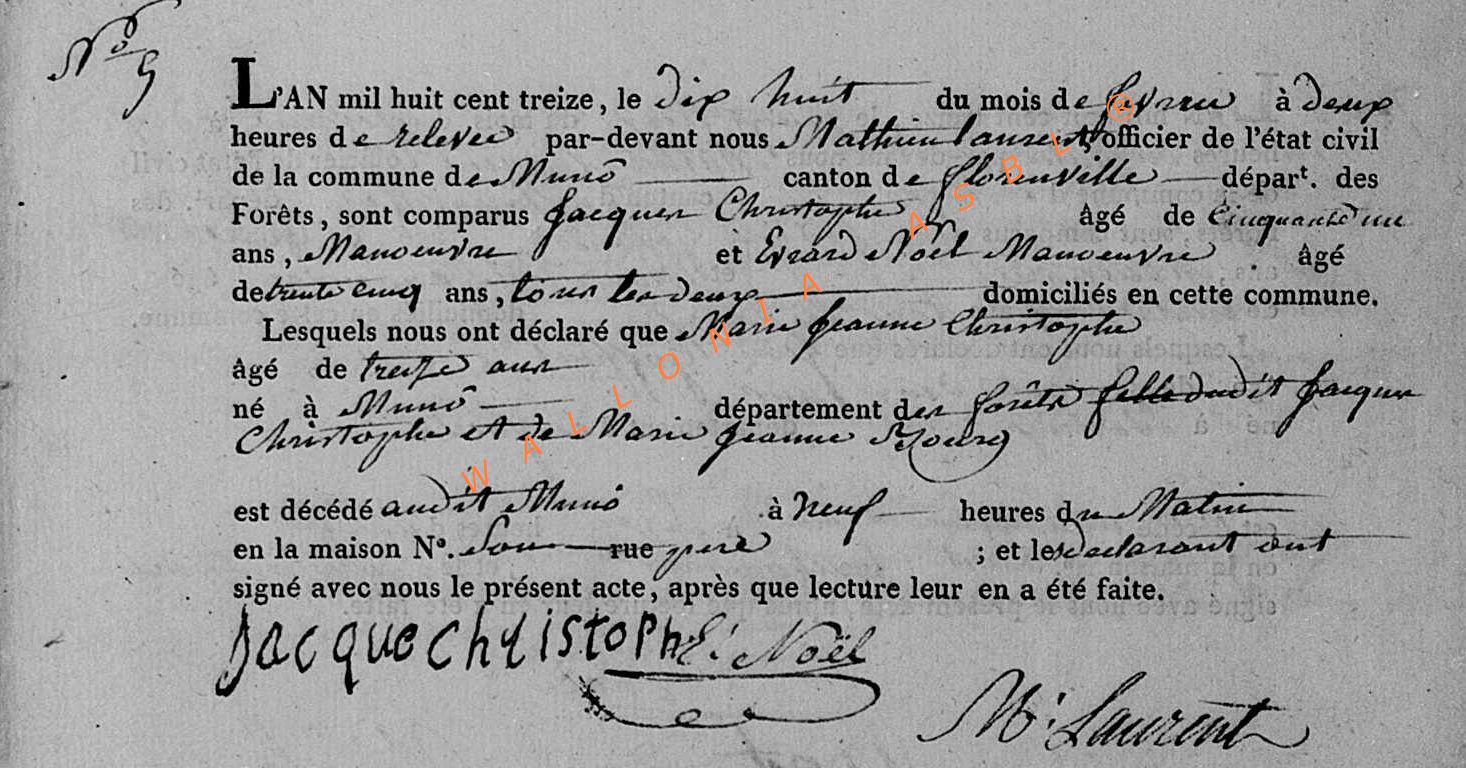 No 9
L'AN mil huit cent treize, le dix huit du mois de fevrier à deux
heures de relevee par-devant nous Mathieu Laurent, officier de l'état civil
de la commune de Muno canton de florenville départ. des
Forêts, sont comparus Jacques Christophe âgé de Cinquante un
ans, Manoeuvre et Evrard Noël Manoeuvre âgé
de trente cinq ans, tous les deux domiciliés en cette commune.
Lesquels nous ont déclaré que Marie Jeanne Christophe
âgé de treize ans
né à Muno département des forêts fille dudit Jacques
Christophe et de Marie Jeanne
est décédé audit Muno à neuf heures du Matin
en la maison No. Son rue pere ; et les declarant ont
signé avec nous le présent acte, après que lecture leur en a été faite.
Jacque christophe E: Noël
M: Laurent
WALLONIA ASBL ©